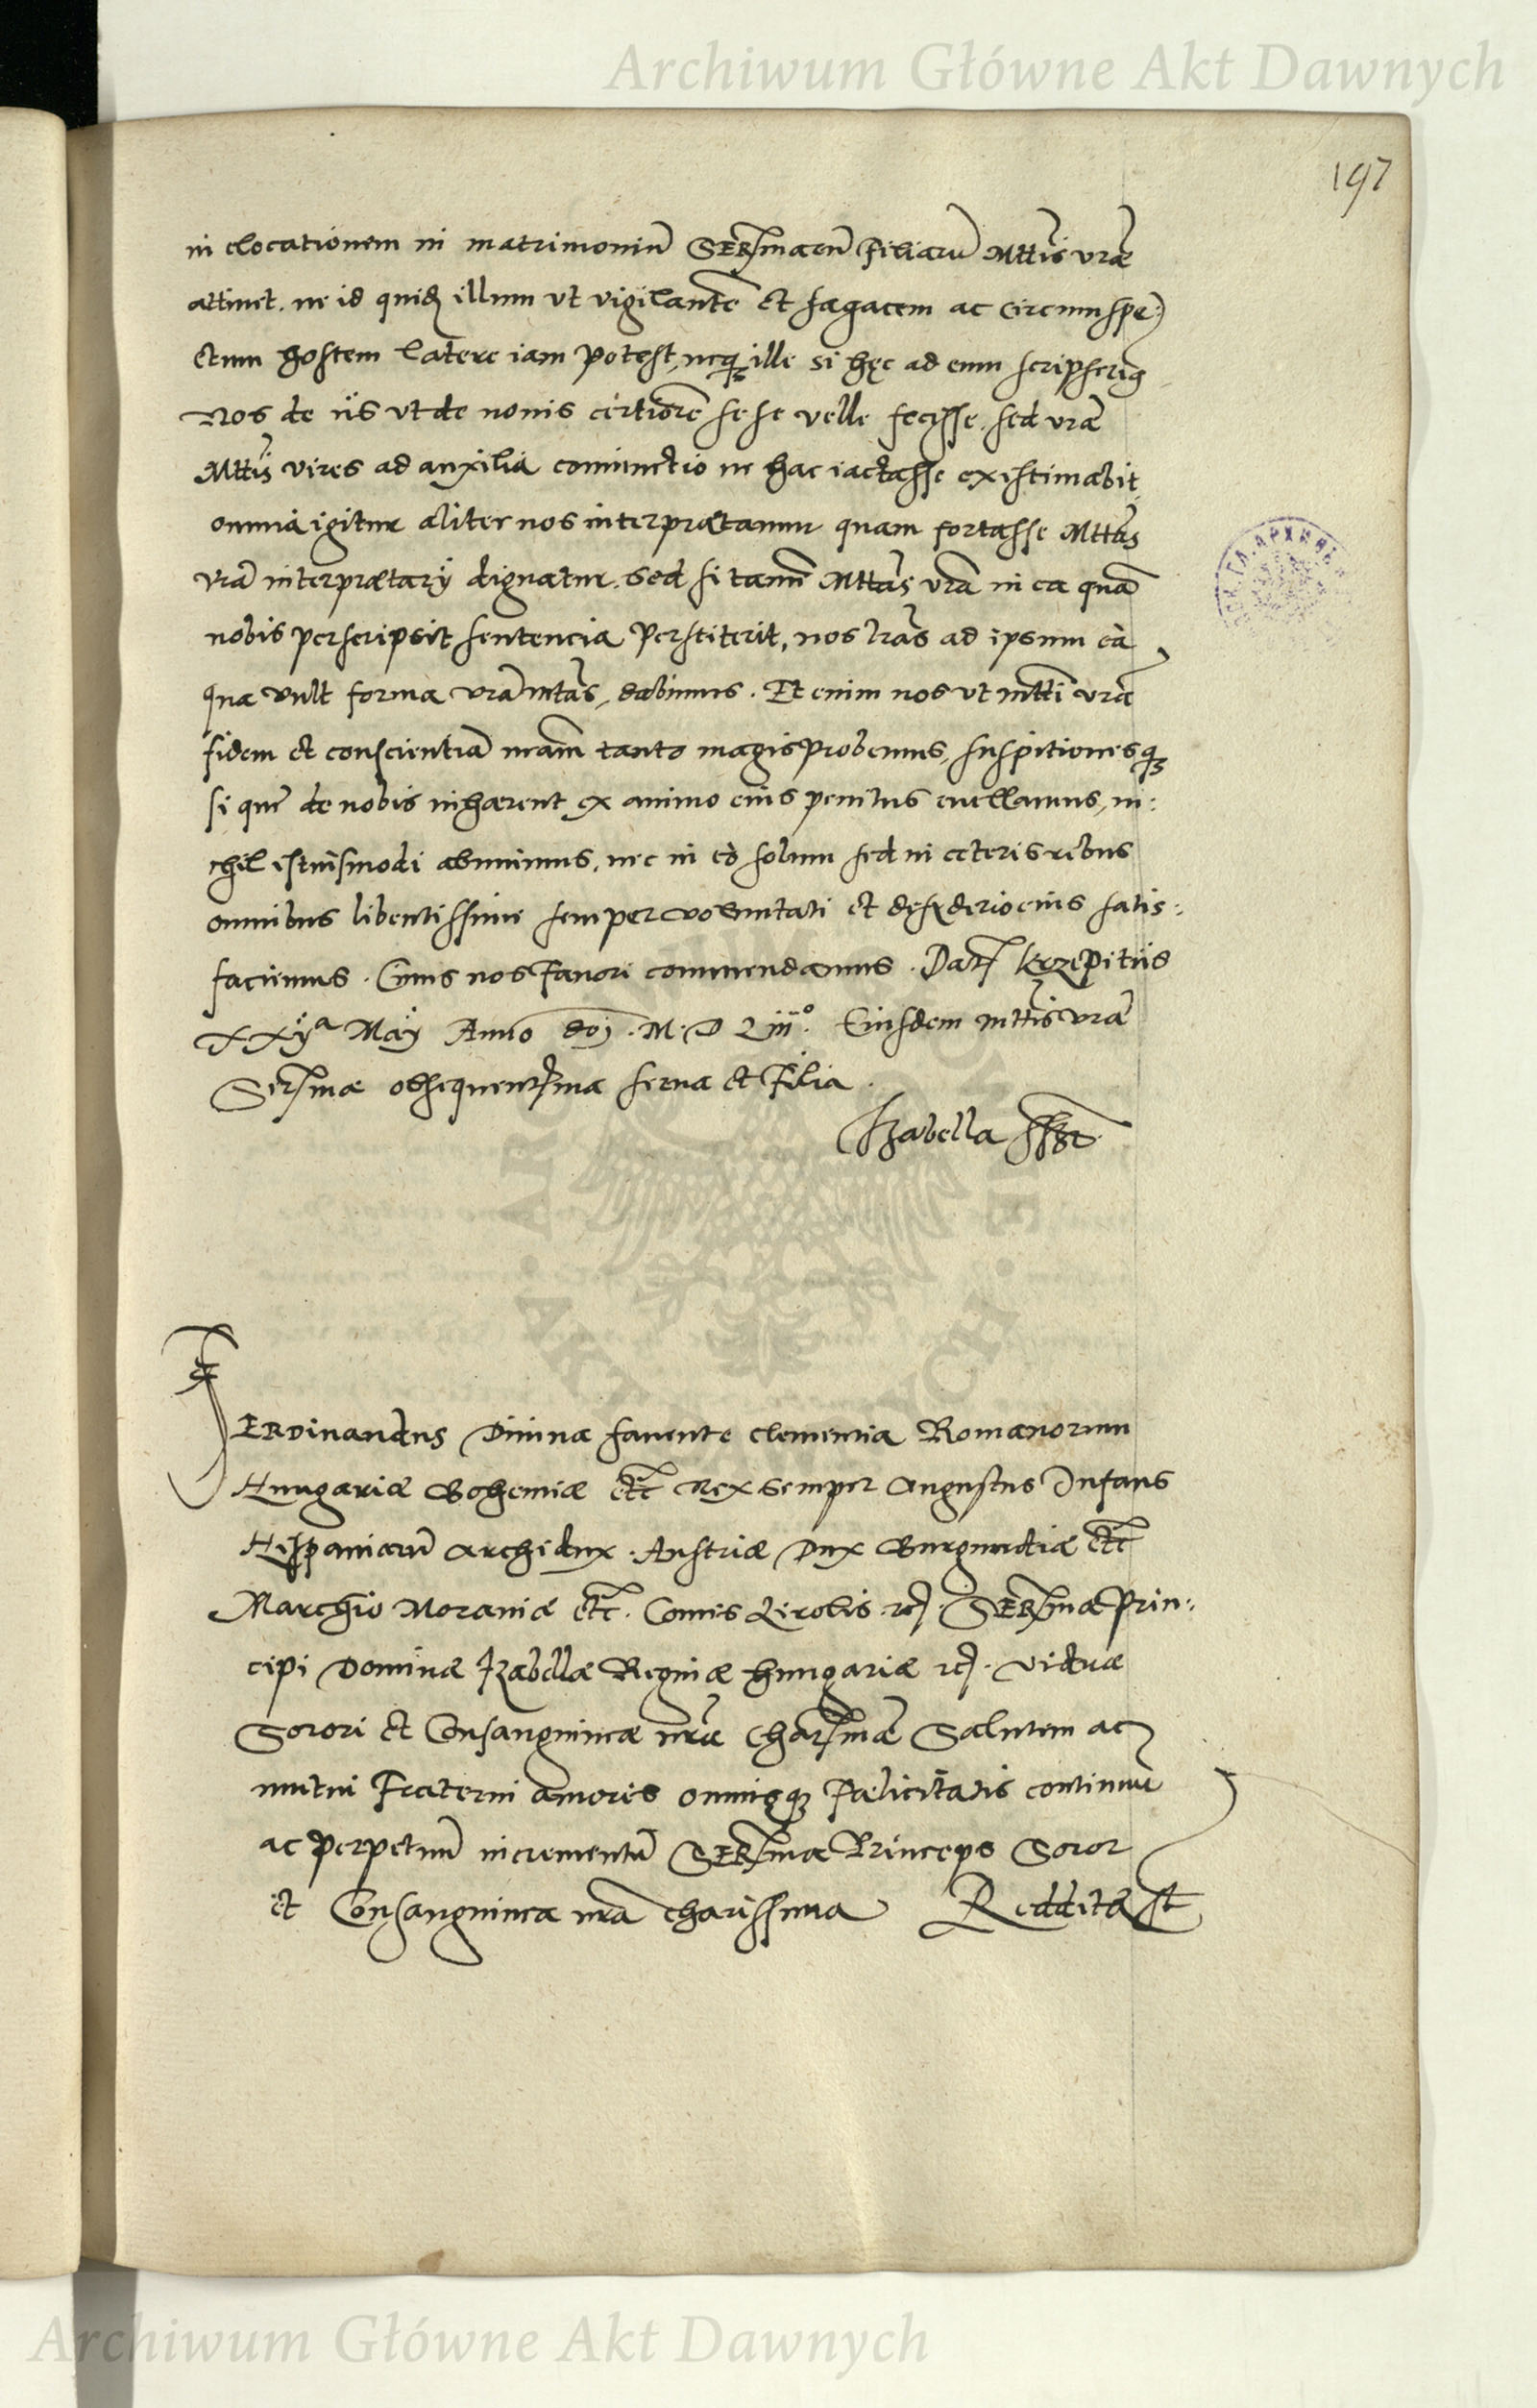 Archiwum Główne Akt Dawnych
197
in elocationem in matrimoniũ SERſmarũ Filiarũ Mttis vrae
attinet. ne id quidẽ illum vt vigilantẽ et sagacem ac circumspe:
ctum hostem latere iam potest, neqꝫ ille si hęc ad eum scripserim
Nos de iis vt de nouis certiorẽ sese velle fecisse. sed vrae
Mttis vires ad auxilia coniunctio ne hac iactasse existimabit
omnia igitur aliter nos interpraetamur quam fortasse Mttas
vrã interpraetarij dignatur. Sed si tamẽ Mttas vrã in ea quã
nobis perscripsit sentencia perstiterit, nos lrãs ad ipsum eà
qua vult forma vrã mtãs, dabimus. Et enim nos vt mtti vrae
fidem et conscientiã nrãm tanto magis probemus, suspitionesqꝫ
si que de nobis inhaerent ex animo eius penitus euellamus, ni:
chil istiusmodi abnuimus, nec in eo solum sed in ceteris rebus
omnibus libentissime semper voluntati et desyderio eius satis:
faciemus. Cuius nos Fauori commendamus. Dat Krzepitiis
XXijª Maij Anno dnj. M. D Liii°. Eiusdem mttis vrae
Serſmae obsequentſma serua et Filia.
Izabella sst
FERDinandus Diuina fauente clementia Romanorum
Hungariae Bohemiae etc Rex semper Augustus Infans
Hispaniarũ Archidux. Austriae Dux Burgundiae etc
Marchio Morauiae etc. Comes Tirolis etc. SERſmae Prin:
cipi Dominae Izabellae Reginae Hungariae etc. Viduae
Sorori et Consanguineae nrae Charſmae Salutem ac
mutui Fraterni amoris omnisqꝫ Faelicitatis continuũ
ac perpetuũ incrementũ SERſma Princeps Soror
et Consanguinea nrã charissima Reddita st
Archiwum Główne Akt Dawnych